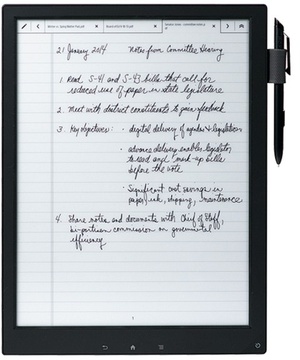 21 January 2014 Notes from Committee Hearing
1. Read S-41 and S-43 bills that call for
reduced use of paper in state legislature
2. Meet with district constituents to gain feedback
3. Key objectives: · digital delivery of agendas & legislation
· advance delivery enables legislators
to read and "mark-up" bills
before the vote
· Significant cost savings in
paper, ink, shipping, maintenance
4. Share notes and documents with Chief of Staff,
bi-partisan commission on governmental
efficiency
1